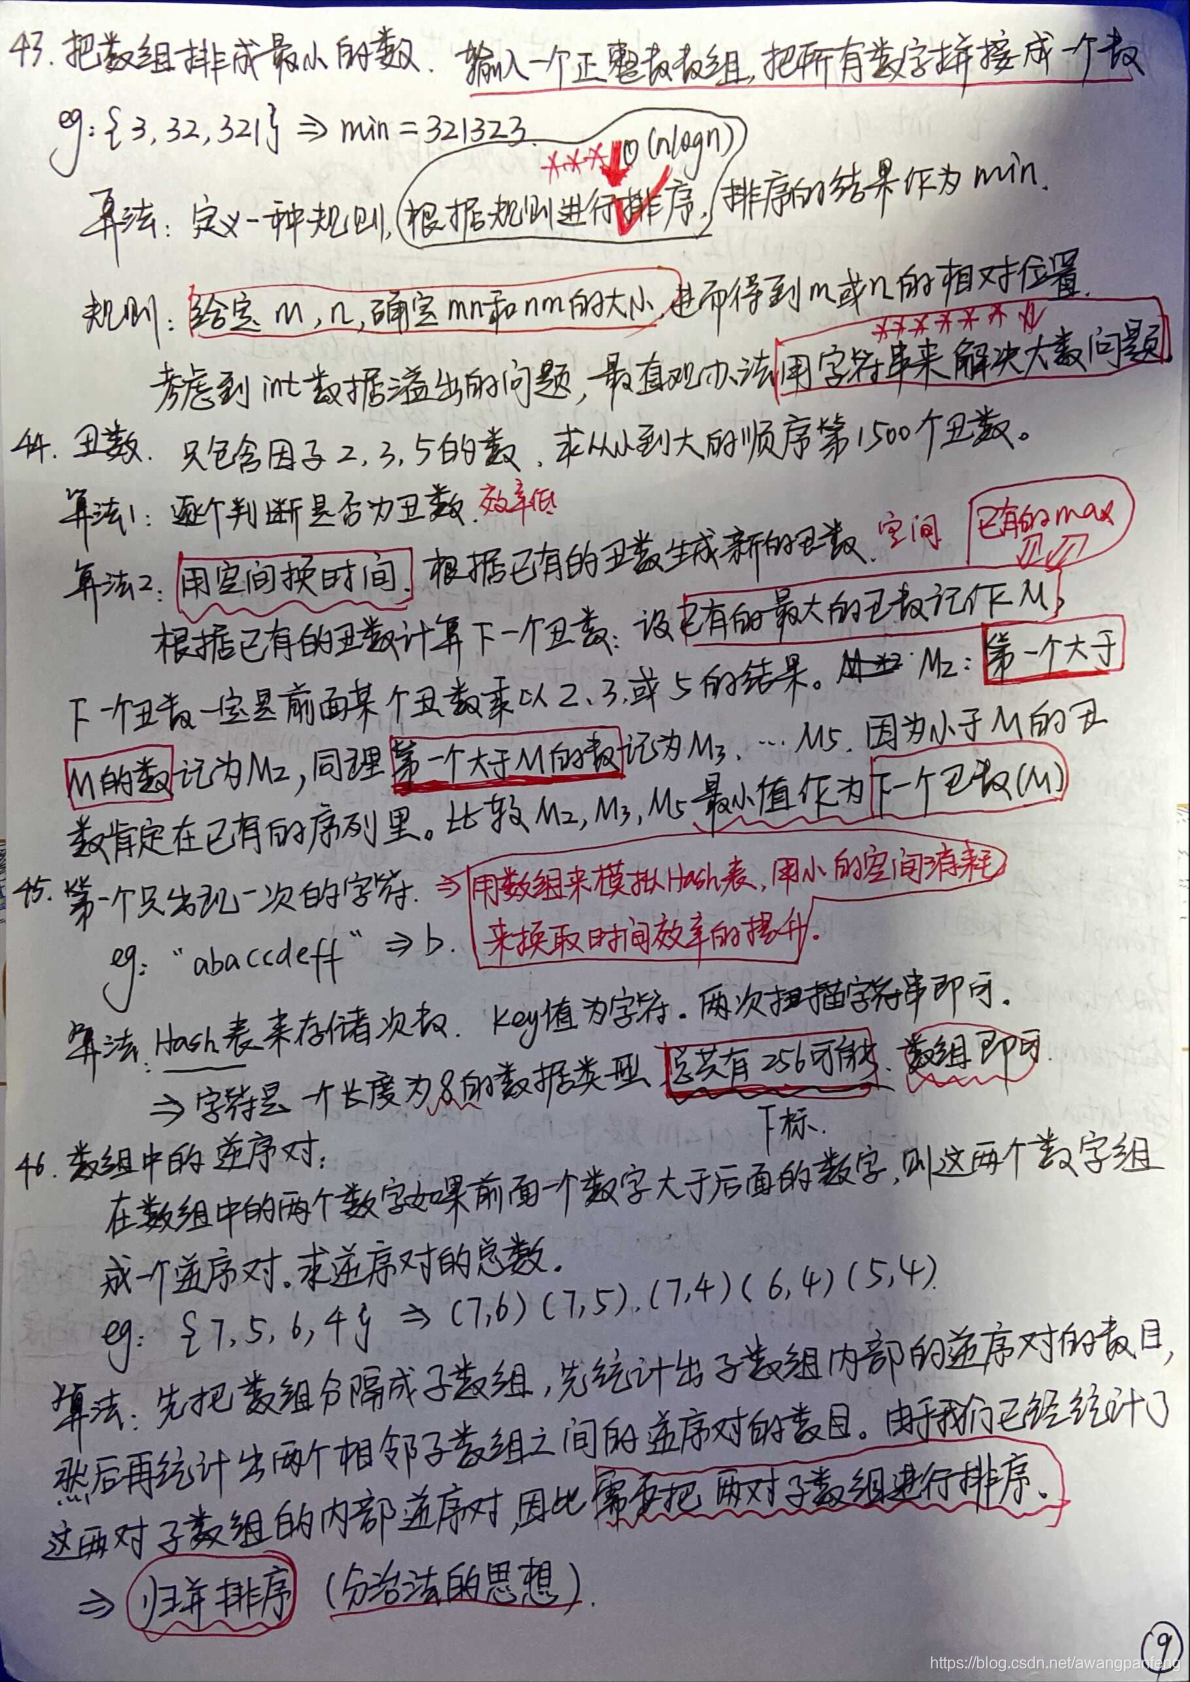 43. 把数组排成最小的数. 输入一个正整数数组,把所有数字拼接成一个数
eg: {3, 32, 321} ⇒ min = 321323
*** O(nlogn)
算法: 定义一种规则,根据规则进行排序,排序的结果作为min.
规则: 给定m,n,确定mn和nm的大小,进而得到m或n的相对位置.
考虑到int数据溢出的问题,最直观办法用字符串来解决大数问题
44. 丑数. 只包含因子2,3,5的数,求从小到大的顺序第1500个丑数。
算法1: 逐个判断是否为丑数. 效率低
算法2: 用空间换时间. 根据已有的丑数生成新的丑数. 空间 已有的max
根据已有的丑数计算下一个丑数: 设已有的最大的丑数记作M,
下一个丑数一定是前面某个丑数乘以2、3、或5的结果。 M2: 第一个大于
M的数记为M2,同理第一个大于M的数记为M3, … M5. 因为小于M的丑
数肯定在已有的序列里。比较M2, M3, M5最小值作为下一个丑数(M)
45. 第一个只出现一次的字符. ⇒ 用数组来模拟Hash表,用小的空间消耗
来换取时间效率的提升.
eg: "abaccdeff" ⇒ b.
算法: Hash表来存储次数. Key值为字符。两次扫描字符串即可.
⇒ 字符是一个长度为8的数据类型,总共有256可能. 数组即可.
下标.
46. 数组中的逆序对:
在数组中的两个数字如果前面一个数字大于后面的数字,则这两个数字组
成一个逆序对。求逆序对的总数.
eg: {7, 5, 6, 4} ⇒ (7,6) (7,5), (7,4) (6,4) (5,4).
算法: 先把数组分隔成子数组,先统计出子数组内部的逆序对的数目,
然后再统计出两个相邻子数组之间的逆序对的数目。由于我们已经统计了
这两对子数组的内部逆序对,因此需要把两对子数组进行排序.
⇒ 归并排序 (分治法的思想).
9
https://blog.csdn.net/awangpanfeng